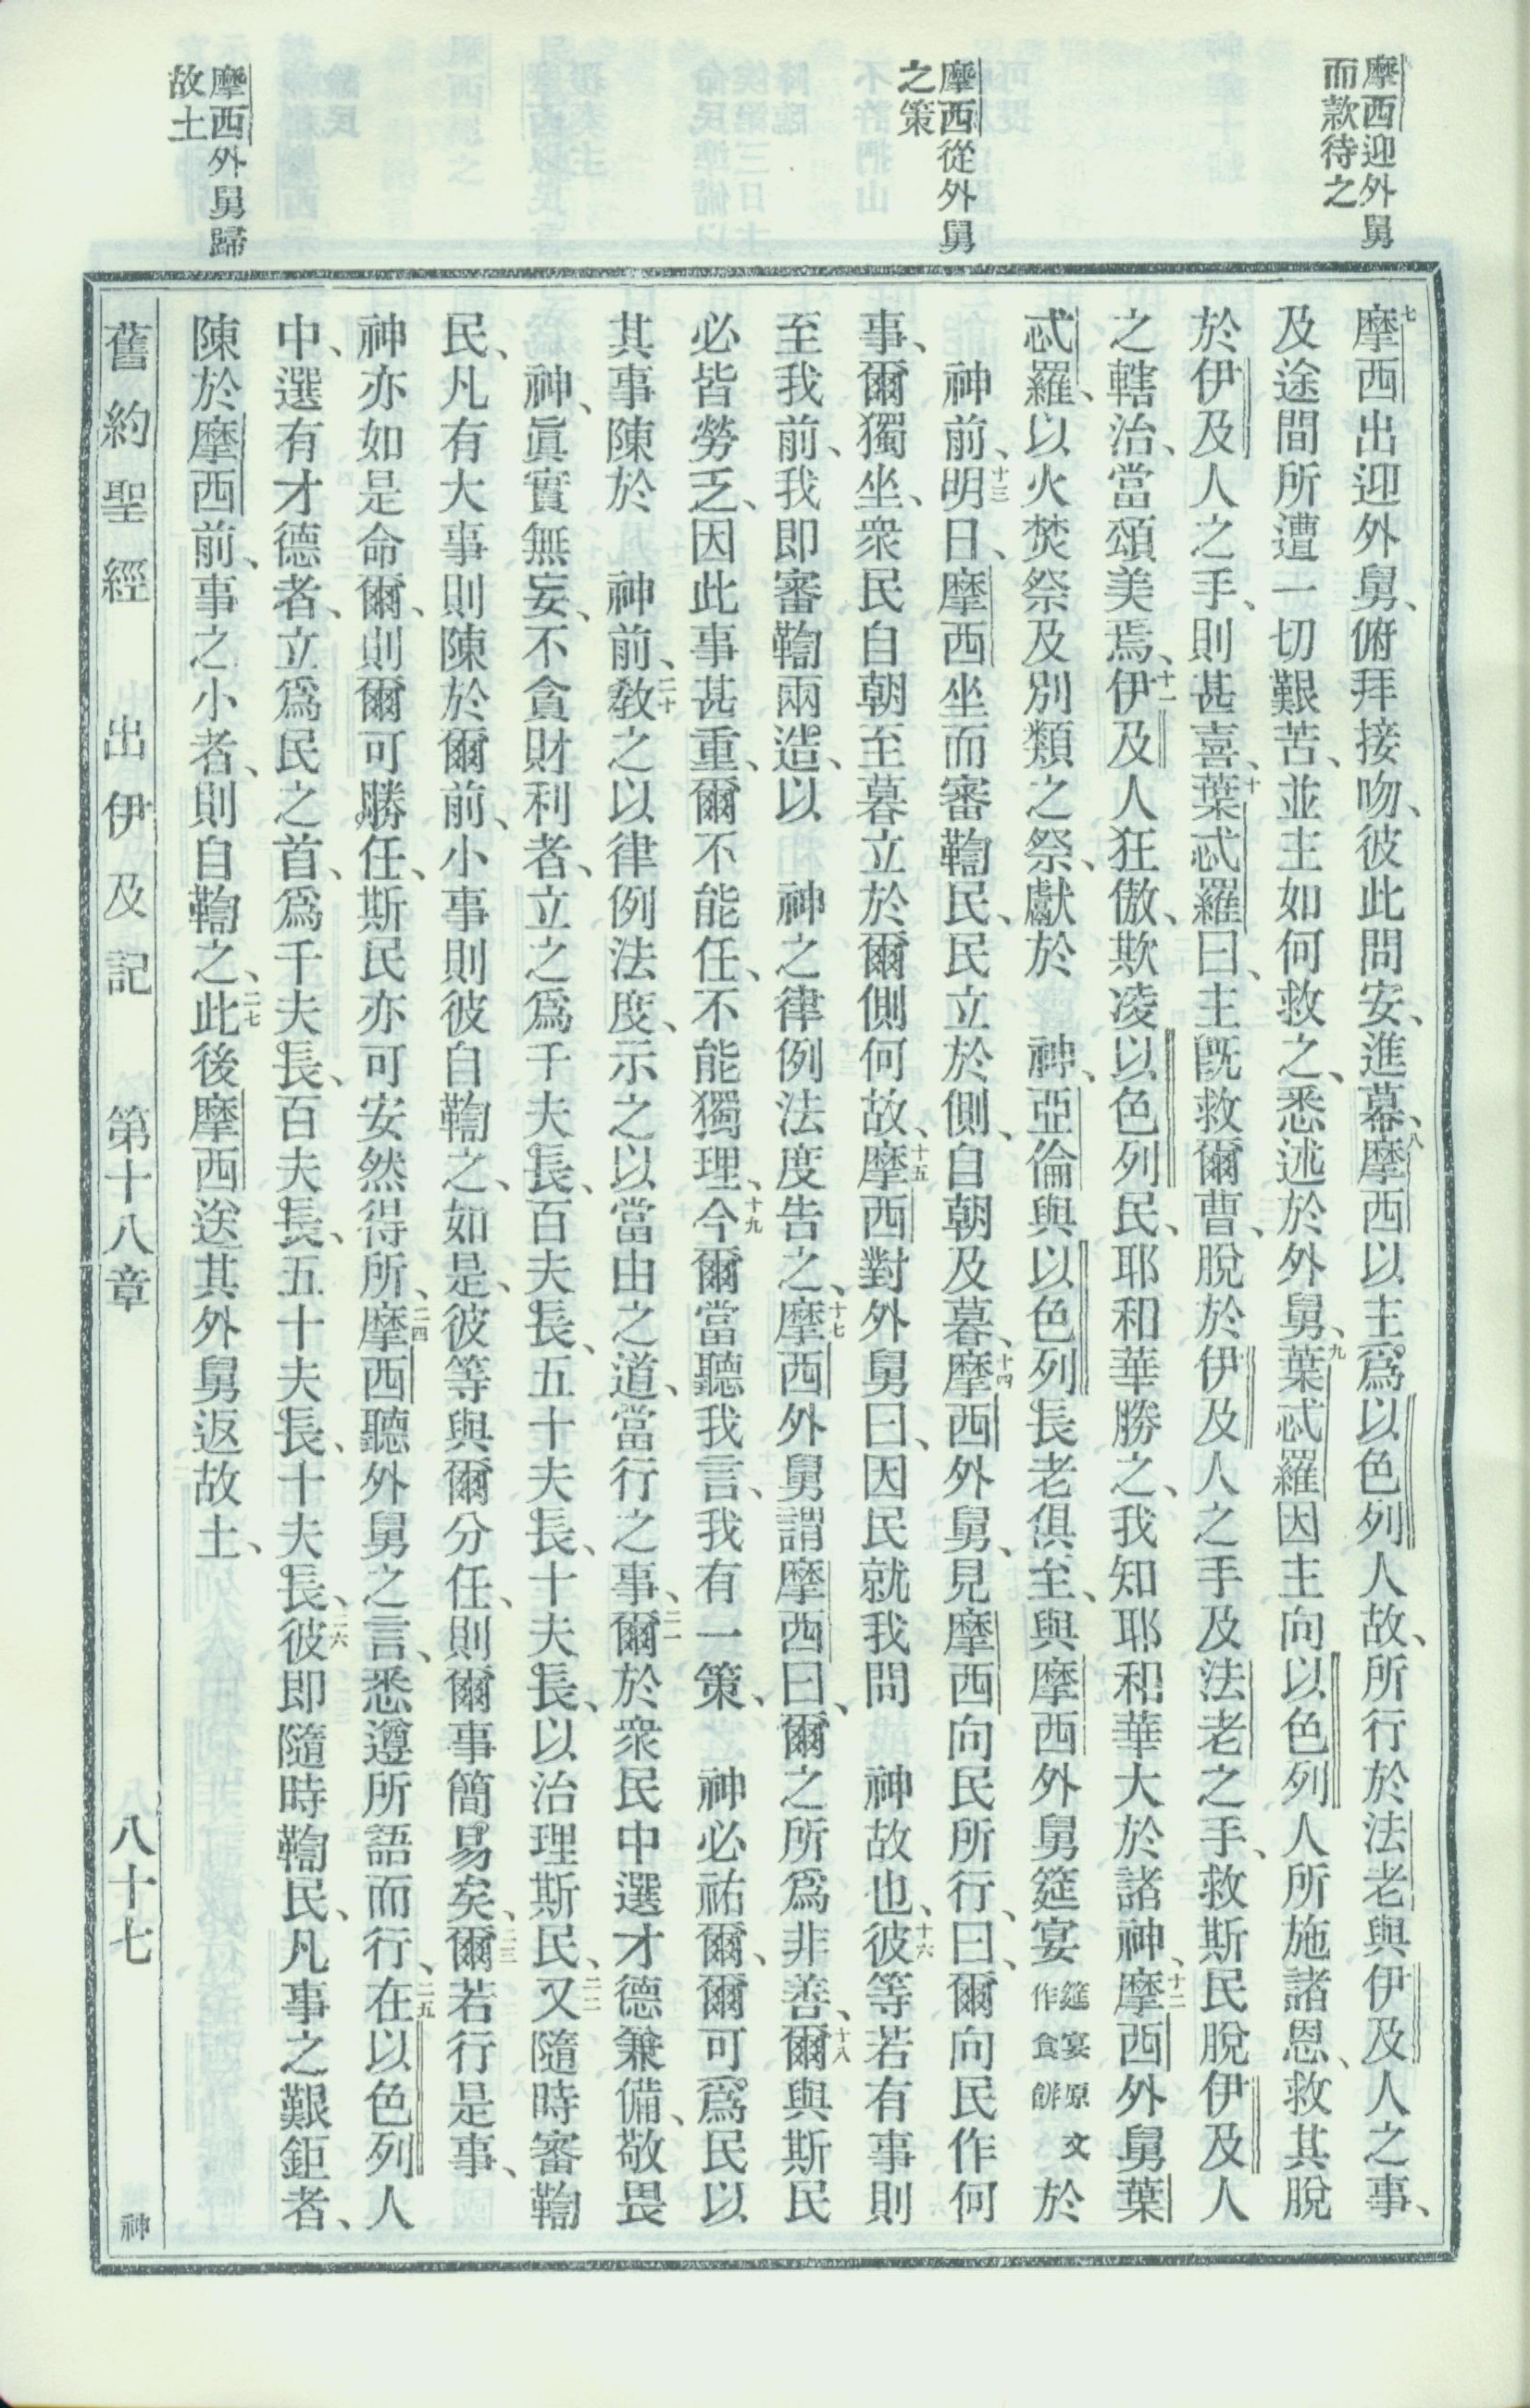 摩西迎外舅
而款待之
摩西從外舅
之策
摩西外舅歸
故土
七摩西出迎外舅、俯拜接吻、彼此問安、進幕、八摩西以主爲以色列人故、所行於法老與伊及人之事、
及途間所遭一切艱苦、並主如何救之、悉述於外舅、九葉忒羅因主向以色列人所施諸恩、救其脫
於伊及人之手、則甚喜、十葉忒羅曰、主旣救爾曹、脫於伊及人之手及法老之手、救斯民脫伊及人
之轄治、當頌美焉、十一伊及人狂傲、欺凌以色列民、耶和華勝之、我知耶和華大於諸神、十二摩西外舅葉
忒羅、以火焚祭及別類之祭、獻於 神、亞倫與以色列長老俱至、與摩西外舅筵宴筵宴原文作食餠於
神前、十三明日、摩西坐而審鞫民、民立於側、自朝及暮、十四摩西外舅、見摩西向民所行、曰、爾向民作何
事、爾獨坐、衆民自朝至暮立於爾側何故、十五摩西對外舅曰、因民就我問 神故也、十六彼等若有事則
至我前、我即審鞫兩造、以 神之律例法度告之、十七摩西外舅謂摩西曰、爾之所爲非善、十八爾與斯民
必皆勞乏、因此事甚重、爾不能任、不能獨理、十九今爾當聽我言、我有一策、 神必祐爾、爾可爲民以
其事陳於 神前、二十敎之以律例法度、示之以當由之道、當行之事、二一爾於衆民中選才德兼備、敬畏
神、眞實無妄、不貪財利者、立之爲千夫長、百夫長、五十夫長、十夫長、以治理斯民、二二又隨時審鞫
民、凡有大事則陳於爾前、小事則彼自鞫之、如是、彼等與爾分任、則爾事簡易矣、二三爾若行是事、
神亦如是命爾、則爾可勝任、斯民亦可安然得所、二四摩西聽外舅之言、悉遵所語而行、二五在以色列人
中、選有才德者、立爲民之首、爲千夫長、百夫長、五十夫長、十夫長、二六彼即隨時鞫民、凡事之艱鉅者、
陳於摩西前、事之小者、則自鞫之、二七此後摩西送其外舅返故土、
舊約聖經 出伊及記 第十八章 八十七 神